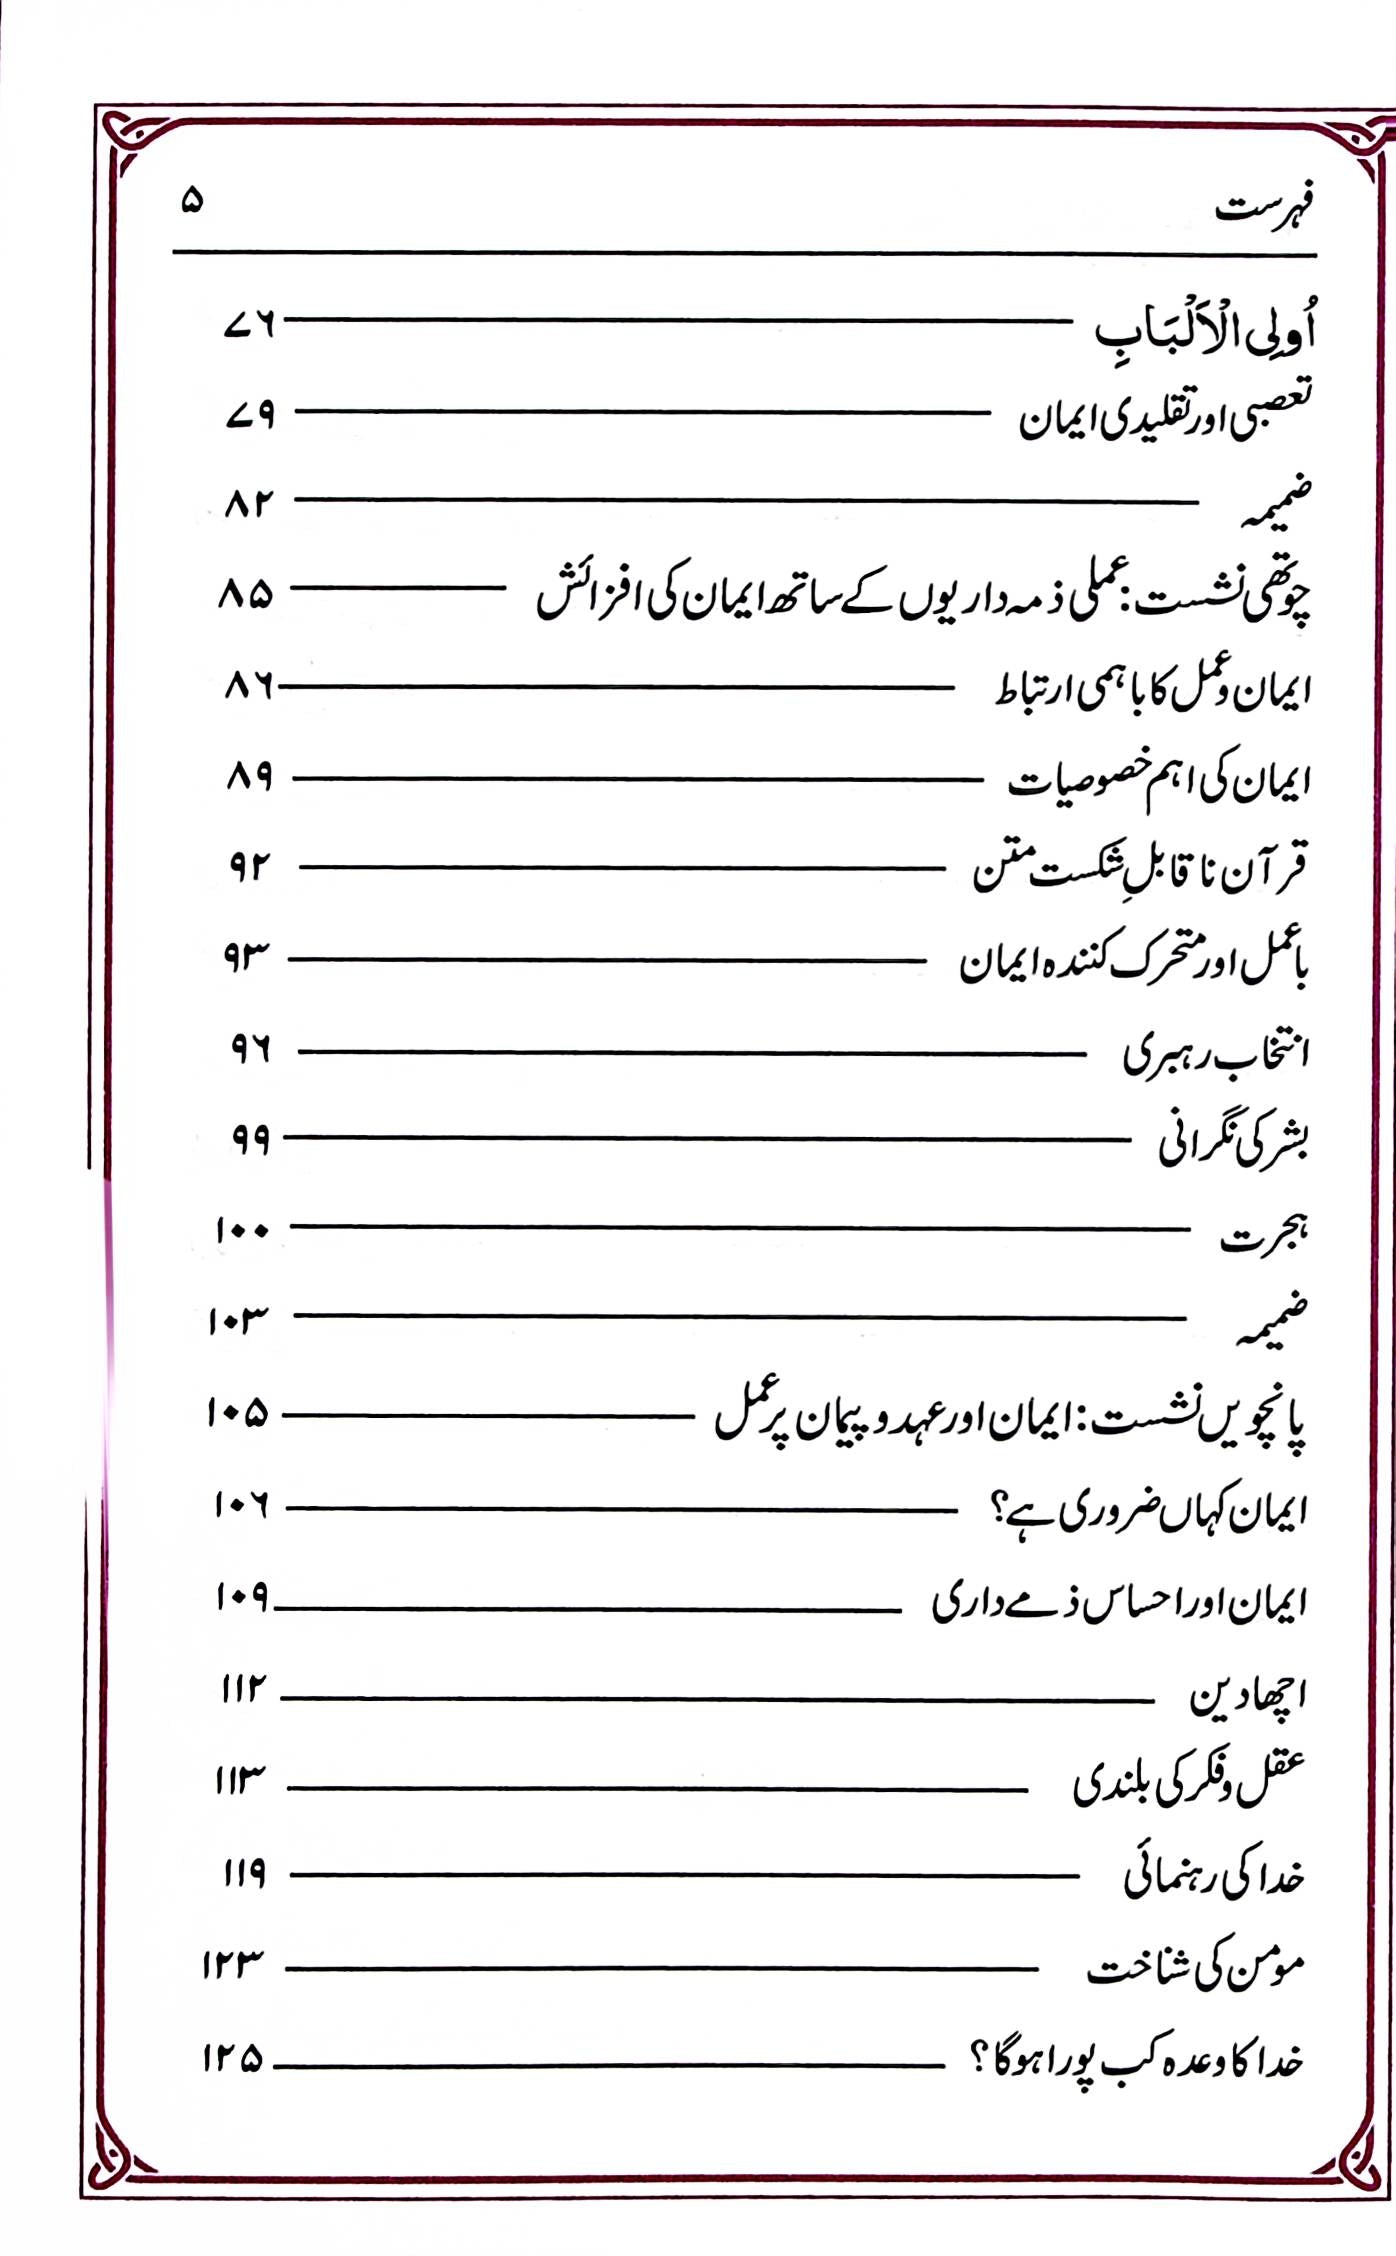 فہرست ۵
اُولِی الْاَلْبَابِ ۷۶
تعصبی اور تقلیدی ایمان ۷۹
ضمیمہ ۸۲
چوتھی نشست: عملی ذمہ داریوں کے ساتھ ایمان کی افزائش ۸۵
ایمان و عمل کا باہمی ارتباط ۸۶
ایمان کی اہم خصوصیات ۸۹
قرآن ناقابلِ شکست متن ۹۲
باعمل اور متحرک کنندہ ایمان ۹۳
انتخاب رہبری ۹۶
بشر کی نگرانی ۹۹
ہجرت ۱۰۰
ضمیمہ ۱۰۳
پانچویں نشست: ایمان اور عہد و پیمان پر عمل ۱۰۵
ایمان کہاں ضروری ہے؟ ۱۰۶
ایمان اور احساس ذمے داری ۱۰۹
اچھا دین ۱۱۲
عقل و فکر کی بلندی ۱۱۳
خدا کی رہنمائی ۱۱۹
مومن کی شناخت ۱۲۳
خدا کا وعدہ کب پورا ہوگا؟ ۱۲۵